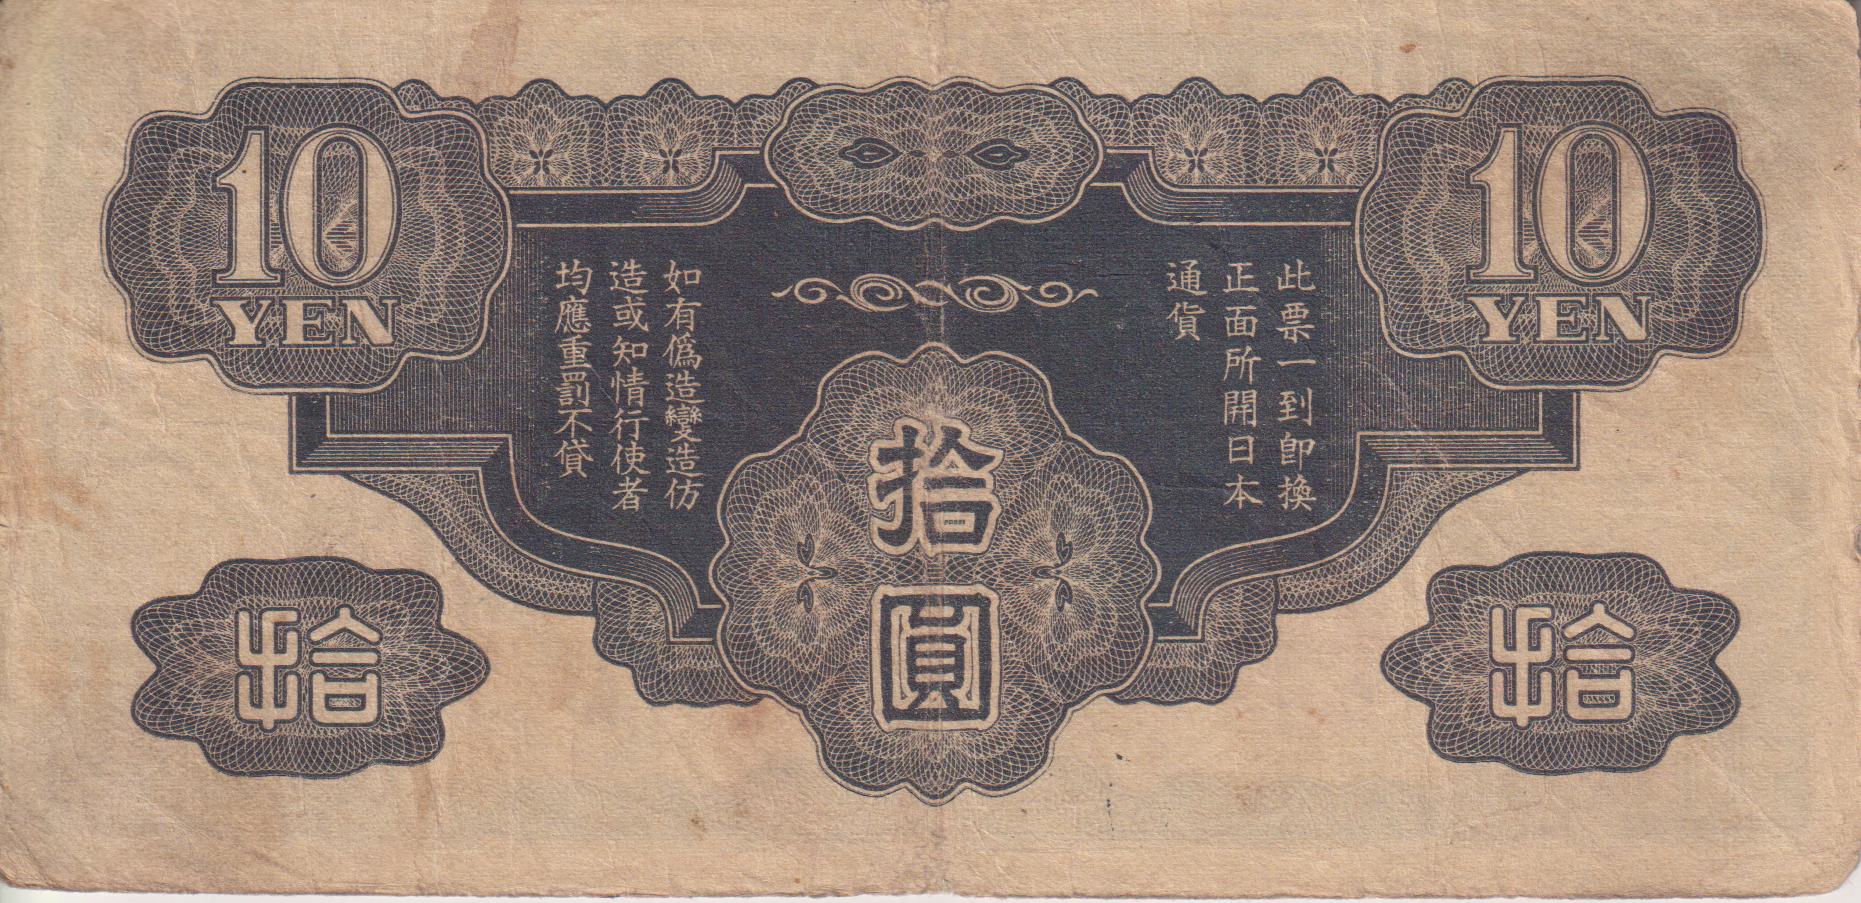 10
YEN
10
YEN
此票一到即換
正面所開日本
通貨
如有偽造變造仿
造或知情行使者
均應重罰不貸
拾圓
拾
拾